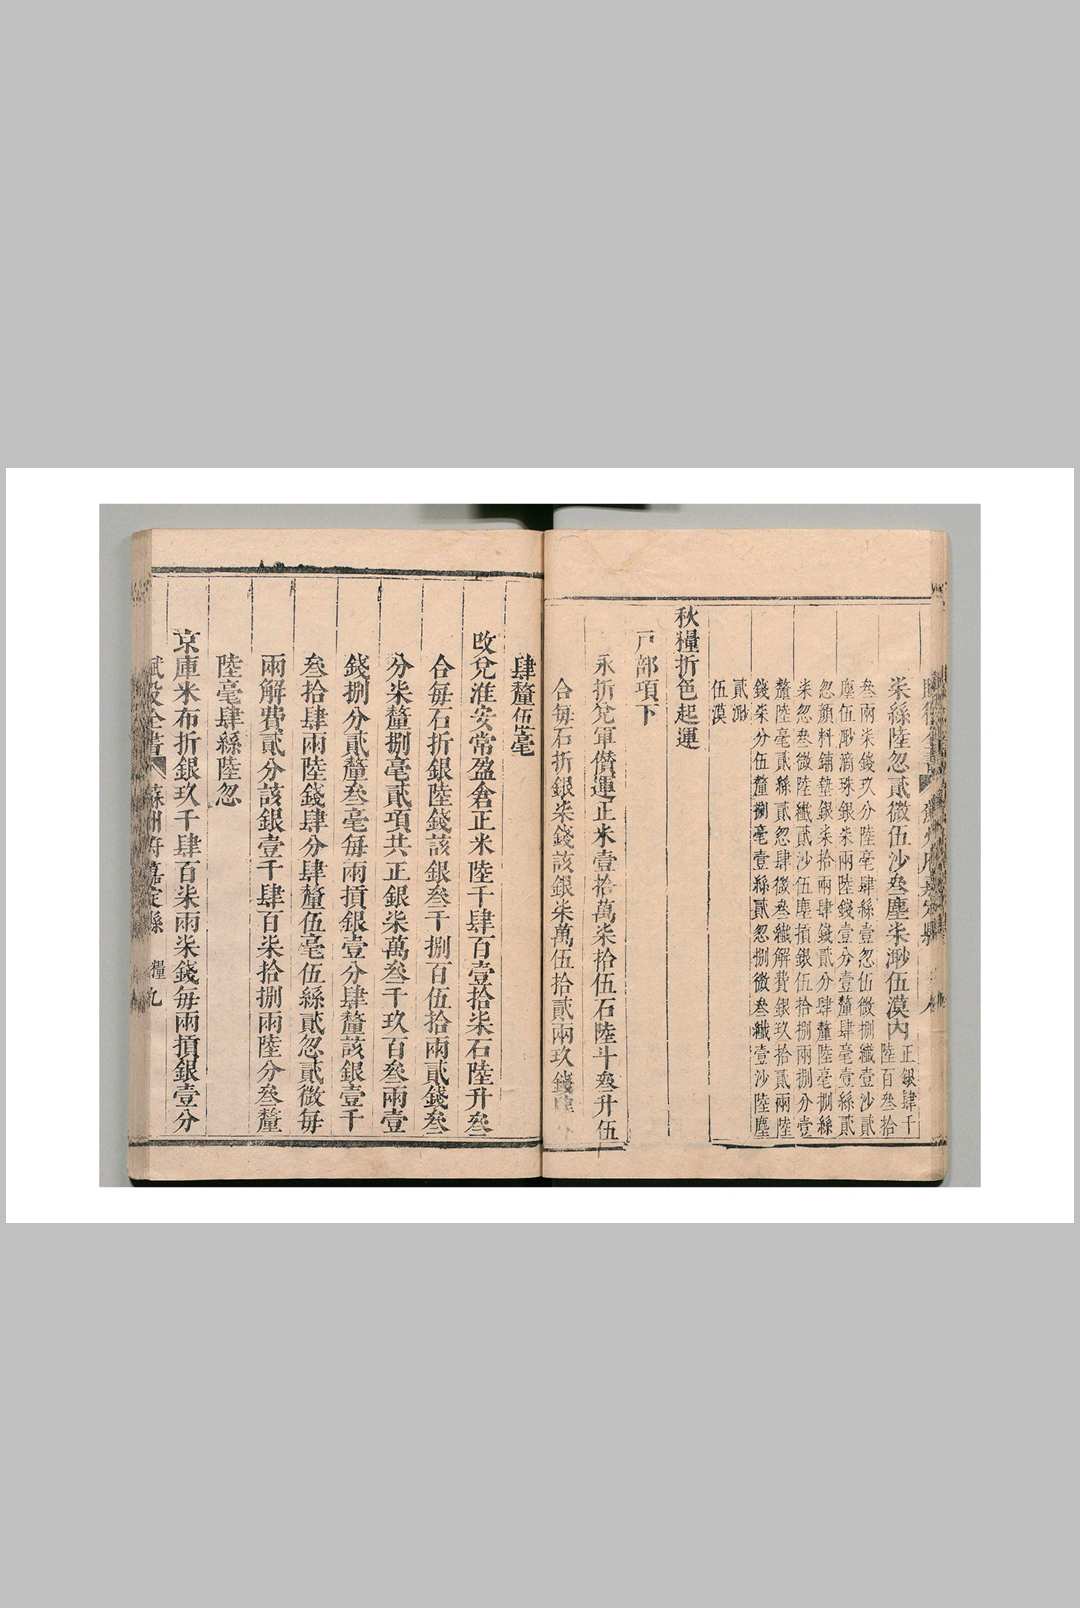 柒絲陸忽貳微伍沙叁塵柒渺伍漠內正銀肆千陸百叁拾
叁兩柒錢玖分陸毫肆絲壹忽伍微捌纖壹沙貳
塵伍渺滴珠銀柒兩陸錢壹分壹釐肆毫壹絲貳
忽顏料鋪墊銀柒拾兩肆錢貳分肆釐陸毫捌絲
柒忽叁微陸纖貳沙伍塵損銀伍拾捌兩捌分壹
釐陸毫貳絲貳忽肆微叁纖解費銀玖拾貳兩陸
錢柒分伍釐捌毫壹絲貳忽捌微叁纖壹沙陸塵
貳渺
伍漠
秋糧折色起運
戶部項下
永折兌軍儹運正米壹拾萬柒拾伍石陸斗叁升伍
合每石折銀柒錢該銀柒萬伍拾貳兩玖錢肆分
肆釐伍毫
改兌淮安常盈倉正米陸千肆百壹拾柒石陸升叁
合每石折銀陸錢該銀叁千捌百伍拾兩貳錢叁
分柒釐捌毫貳項共正銀柒萬叁千玖百叁兩壹
錢捌分貳釐叁毫每兩損銀壹分肆釐該銀壹千
叁拾肆兩陸錢肆分肆釐伍毫伍絲貳忽貳微每
兩解費貳分該銀壹千肆百柒拾捌兩陸分叁釐
陸毫肆絲陸忽
京庫米布折銀玖千肆百柒兩柒錢每兩損銀壹分
賦役全書 蘇州府嘉定縣 糧 九